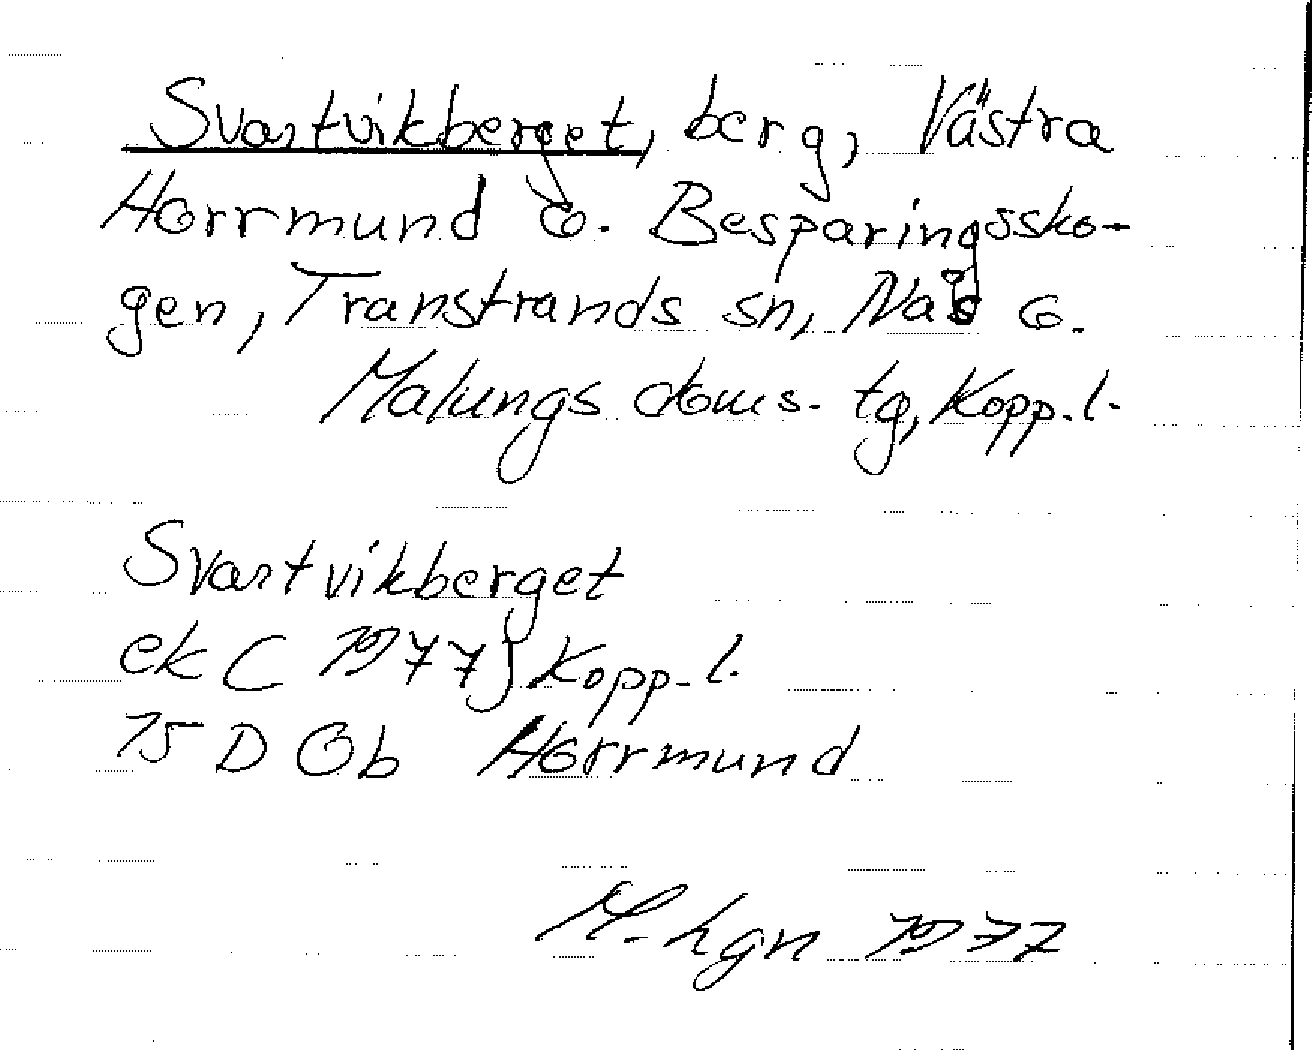 Svartvikberget, berg, Västra
Horrmund o. Besparingssko-
gen, Transtrands sn, Nås o.
Malungs doms. tg, Kopp. l.
Svartvikberget
ek C 1977, Kopp. l.
15 D Ob Horrmund
M. hgn 1977